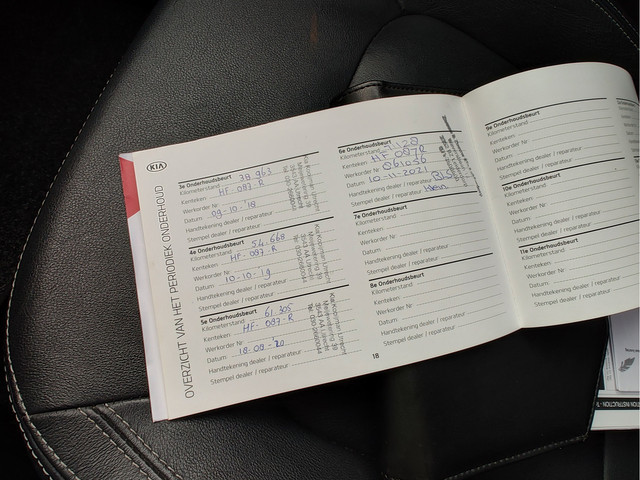 KIA
OVERZICHT VAN HET PERIODIEK ONDERHOUD
3e Onderhoudsbeurt
Kilometerstand 38 963
Kenteken HF-097-R
Werkorder Nr
Datum 09-10-'18
Handtekening dealer / reparateur
Stempel dealer / reparateur
4e Onderhoudsbeurt
Kilometerstand 54.668
Kenteken HF-097-R
Werkorder Nr
Datum 10-10-'19
Handtekening dealer / reparateur
Stempel dealer / reparateur
5e Onderhoudsbeurt
Kilometerstand 61 305
Kenteken HF-097-R
Werkorder Nr
Datum 18-09-'20
Handtekening dealer / reparateur
Stempel dealer / reparateur
6e Onderhoudsbeurt
Kilometerstand
Kenteken HF 097R
Werkorder Nr 061056
Datum 10-11-2021
Handtekening dealer / reparateur
Stempel dealer / reparateur
7e Onderhoudsbeurt
Kilometerstand
Kenteken
Werkorder Nr
Datum
Handtekening dealer / reparateur
Stempel dealer / reparateur
8e Onderhoudsbeurt
Kilometerstand
Kenteken
Werkorder Nr
Datum
Handtekening dealer / reparateur
Stempel dealer / reparateur
18
9e Onderhoudsbeurt
Kilometerstand
Kenteken
Werkorder Nr
Datum
Handtekening dealer / reparateur
Stempel dealer / reparateur
10e Onderhoudsbeurt
Kilometerstand
Kenteken
Werkorder Nr
Datum
Handtekening dealer / reparateur
Stempel dealer / reparateur
11e Onderhoudsbeurt
Kilometerstand
Kenteken
Werkorder Nr
Datum
Handtekening dealer / reparateur
Stempel dealer / reparateur